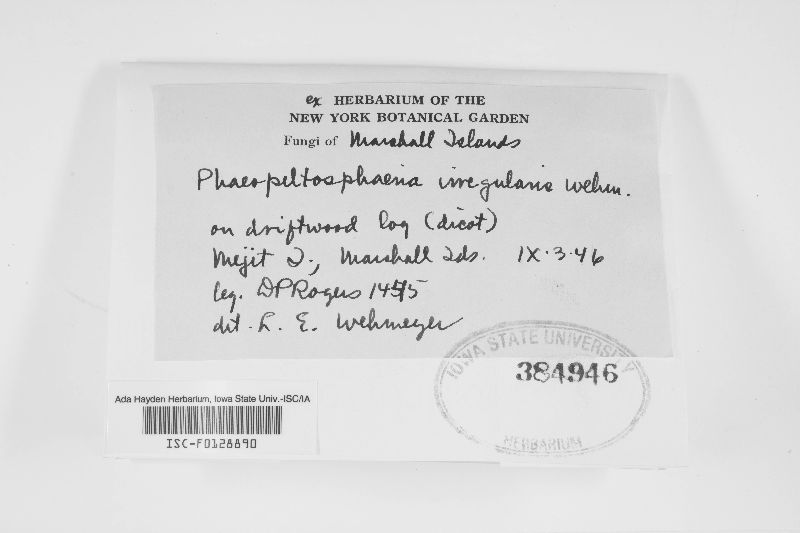 ex HERBARIUM OF THE
NEW YORK BOTANICAL GARDEN
Fungi of Marshall Islands
Phaeopeltosphaeria irregularis Wehm.
on driftwood log (dicot)
Mejit I., Marshall Ids. IX.3.46
leg. DPRogers
det. L. E. Wehmeyer
IOWA STATE UNIVERSITY
384946
HERBARIUM
Ada Hayden Herbarium, Iowa State Univ.-ISC/IA
ISC-F0128890